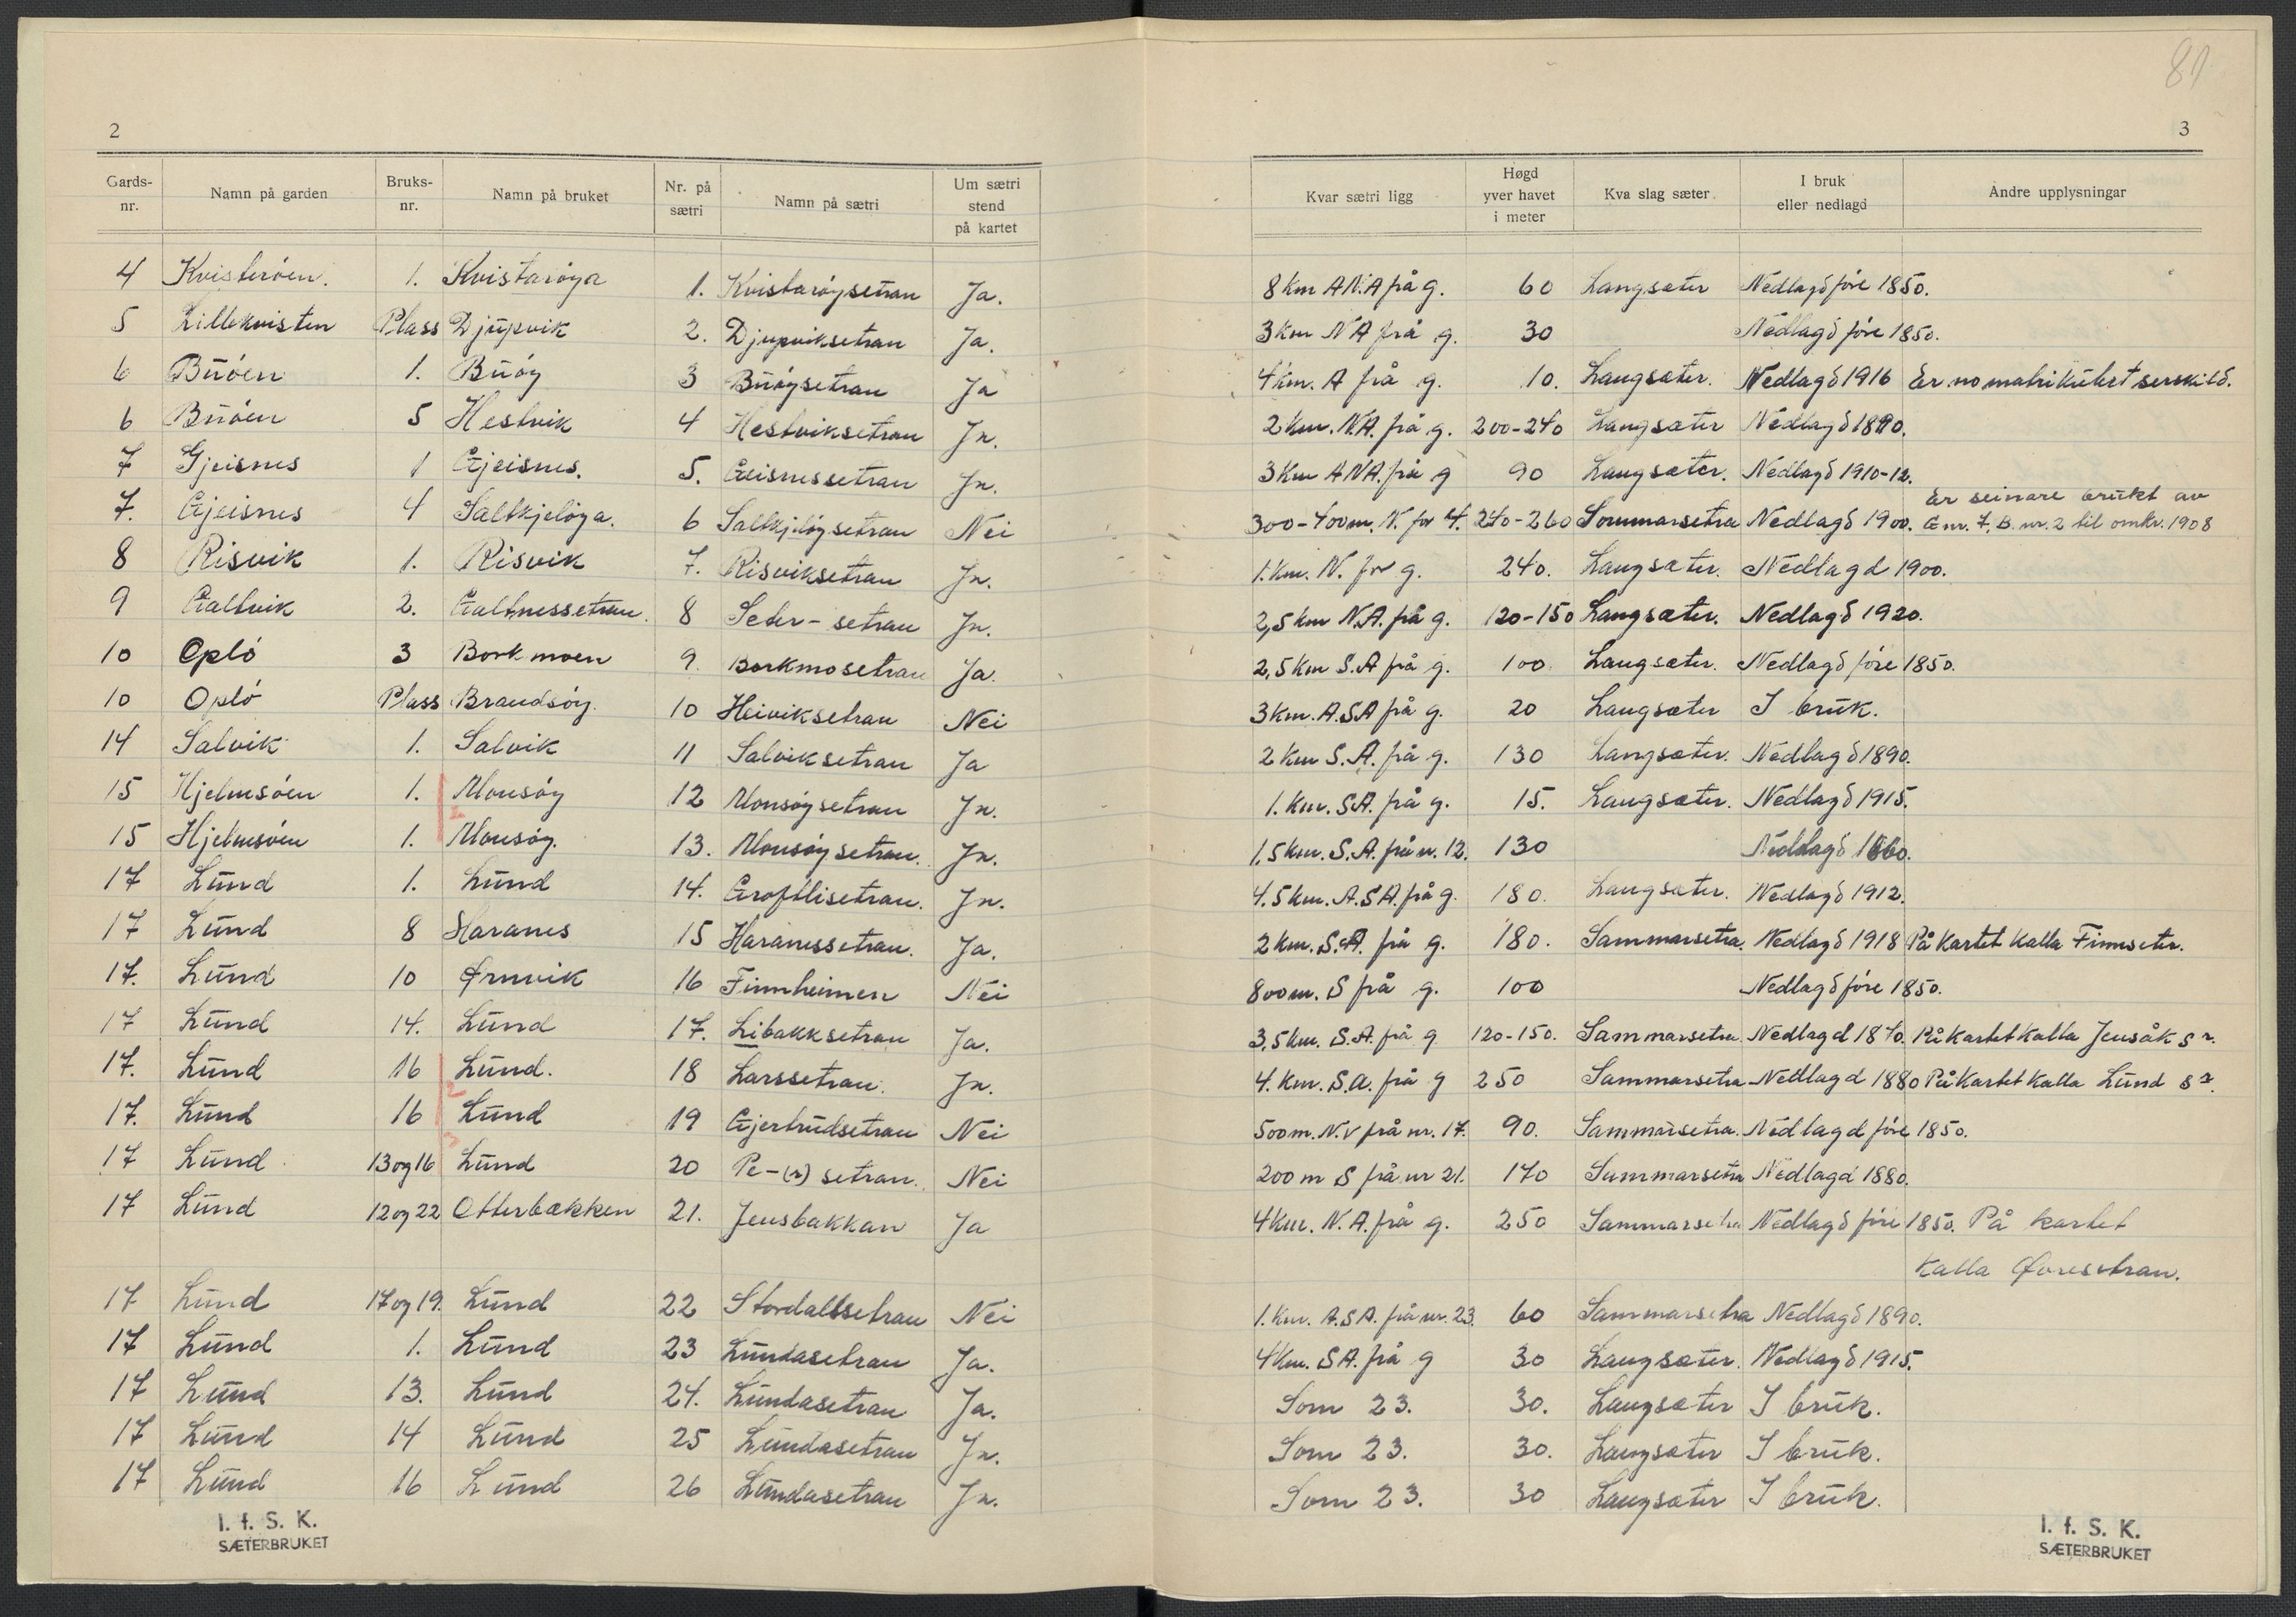 81
2
Gards-nr. | Namn på garden | Bruks-nr. | Namn på bruket | Nr. på sætri | Namn på sætri | Um sætri stend på kartet
4 | Kvisterøen. | 1. | Kvistarøya | 1. | Kvistarøysetran | Ja.
5 | Lillekvisten | Plass | Djupvik | 2. | Djupviksetran | Ja.
6 | Buøen | 1. | Buøy | 3 | Buøysetran | Ja
6 | Buøen | 5 | Hestvik | 4 | Hestviksetran | Ja.
7 | Gjeisnes | 1 | Gjeisnes. | 5. | Geisnessetran | Ja.
7. | Gjeisnes | 4 | Saltkjeløya. | 6 | Saltkjeløysetran | Nei
8 | Risvik | 1. | Risvik | 7. | Risviksetran | Ja.
9 | Galtvik | 2. | Galtnessetran. | 8 | Seter-setran | Ja.
10 | Opló | 3 | Borkmoen | 9. | Borkmosetran | Ja.
10 | Opló | Plass | Brandsøy. | 10 | Heiviksetran | Nei
14 | Salvik | 1. | Salvik | 11 | Salviksetran | Ja
15 | Hjelmsøen | 1. | Monsøy | 12 | Monsøysetran | Ja.
15 | Hjelmsøen | 1. | Monsøy. | 13. | Monsøysetran. | Ja.
17 | Lund | 1. | Lund | 14. | Groftlisetran. | Ja.
17 | Lund | 8 | Haranes | 15 | Haranessetran. | Ja.
17. | Lund | 10 | Ørnvik | 16 | Finnheimen | Nei
17 | Lund | 14. | Lund | 17. | Libakksetran | Ja.
17. | Lund | 16 | Lund. | 18 | Larssetran. | Ja.
17. | Lund | 16 | Lund | 19 | Gjertrudsetran | Nei
17 | Lund | 13 og 16 | Lund | 20 | Pe-(r) setran. | Nei
17 | Lund | 12 og 22 | Otterbakken | 21. | Jensbakkan | Ja
17 | Lund | 17 og 19. | Lund | 22 | Stordalssetran | Nei
17 | Lund | 1. | Lund | 23 | Lundasetran | Ja.
17 | Lund | 13. | Lund | 24. | Lundasetran | Ja.
17 | Lund | 14 | Lund | 25 | Lundasetran | Ja.
17 | Lund | 16 | Lund | 26 | Lundasetran | Ja.
I. f. S. K.
SÆTERBRUKET
3
Kvar sætri ligg | Høgd yver havet i meter | Kva slag sæter | I bruk eller nedlagd | Andre upplysningar
8 km ANA frå g. | 60 | Langsæter | Nedlagd före 1850.
3 km NA frå g. | 30 | Nedlagd före 1850.
4 km. A frå g. | 10. | Langsæter. | Nedlagd 1916 | Er no matrikulert serskild.
2 km. N.A. frå g. | 200-240 | Langsæter | Nedlagd 1890.
3 km ANA. frå g | 90 | Langsæter. | Nedlagd 1910-12.
300-400 m. N. for 4. | 240-260 | Sommarsetra | Nedlagd 1900. | Er seinare brukt av
G.nr. 7. B.nr. 2 til omkr. 1908
1. km. N. for g. | 240. | Langsæter. | Nedlagd 1900.
2,5 km N.A. frå g. | 120-150 | Langsæter. | Nedlagd 1920.
2,5 km S.A frå g. | 100 | Langsæter. | Nedlagd före 1850.
3 km. A.SA frå g. | 20 | Langsæter | I bruk.
2 km S.A. frå g. | 130 | Langsæter. | Nedlagd 1890.
1. km. S.A. frå g. | 15. | Langsæter. | Nedlagd 1915.
1,5 km. S.A. frå nr. 12. | 130 | Nedlagd 1860.
4.5 km. A.SA. frå g. | 180. | Langsæter. | Nedlagd 1912.
2 km. S.A. frå g. | 180. | Sammarsetra. | Nedlagd 1918 | På kartet kalla Finnseter.
800 m. S frå g. | 100 | Nedlagd före 1850.
3,5 km. S.A. frå g | 120-150. | Sammarsetra. | Nedlagd 1870. | På kartet kalla Jensåk sr.
4. km. S.A. frå g | 250 | Sammarsetra | Nedlagd 1880 | På kartet kalla Lund sr.
500 m. N.V frå nr. 17. | 90. | Sammarsetra. | Nedlagd före 1850.
200 m S frå nr 21. | 170 | Sammarsetra | Nedlagd 1880.
4 km. N.A. frå g. | 250 | Sammarsetra | Nedlagd före 1850. | På kartet
kalla Øvresetran.
1. km. A.SA. frå nr. 23. | 60 | Sammarsetra | Nedlagd 1890.
4 km. SA. frå g | 30 | Langsæter. | Nedlagd 1915.
Som 23. | 30. | Langsæter | I bruk.
Som 23. | 30. | Langsæter | I bruk.
Som 23. | 30 | Langsæter | I bruk.
I. f. S. K.
SÆTERBRUKET